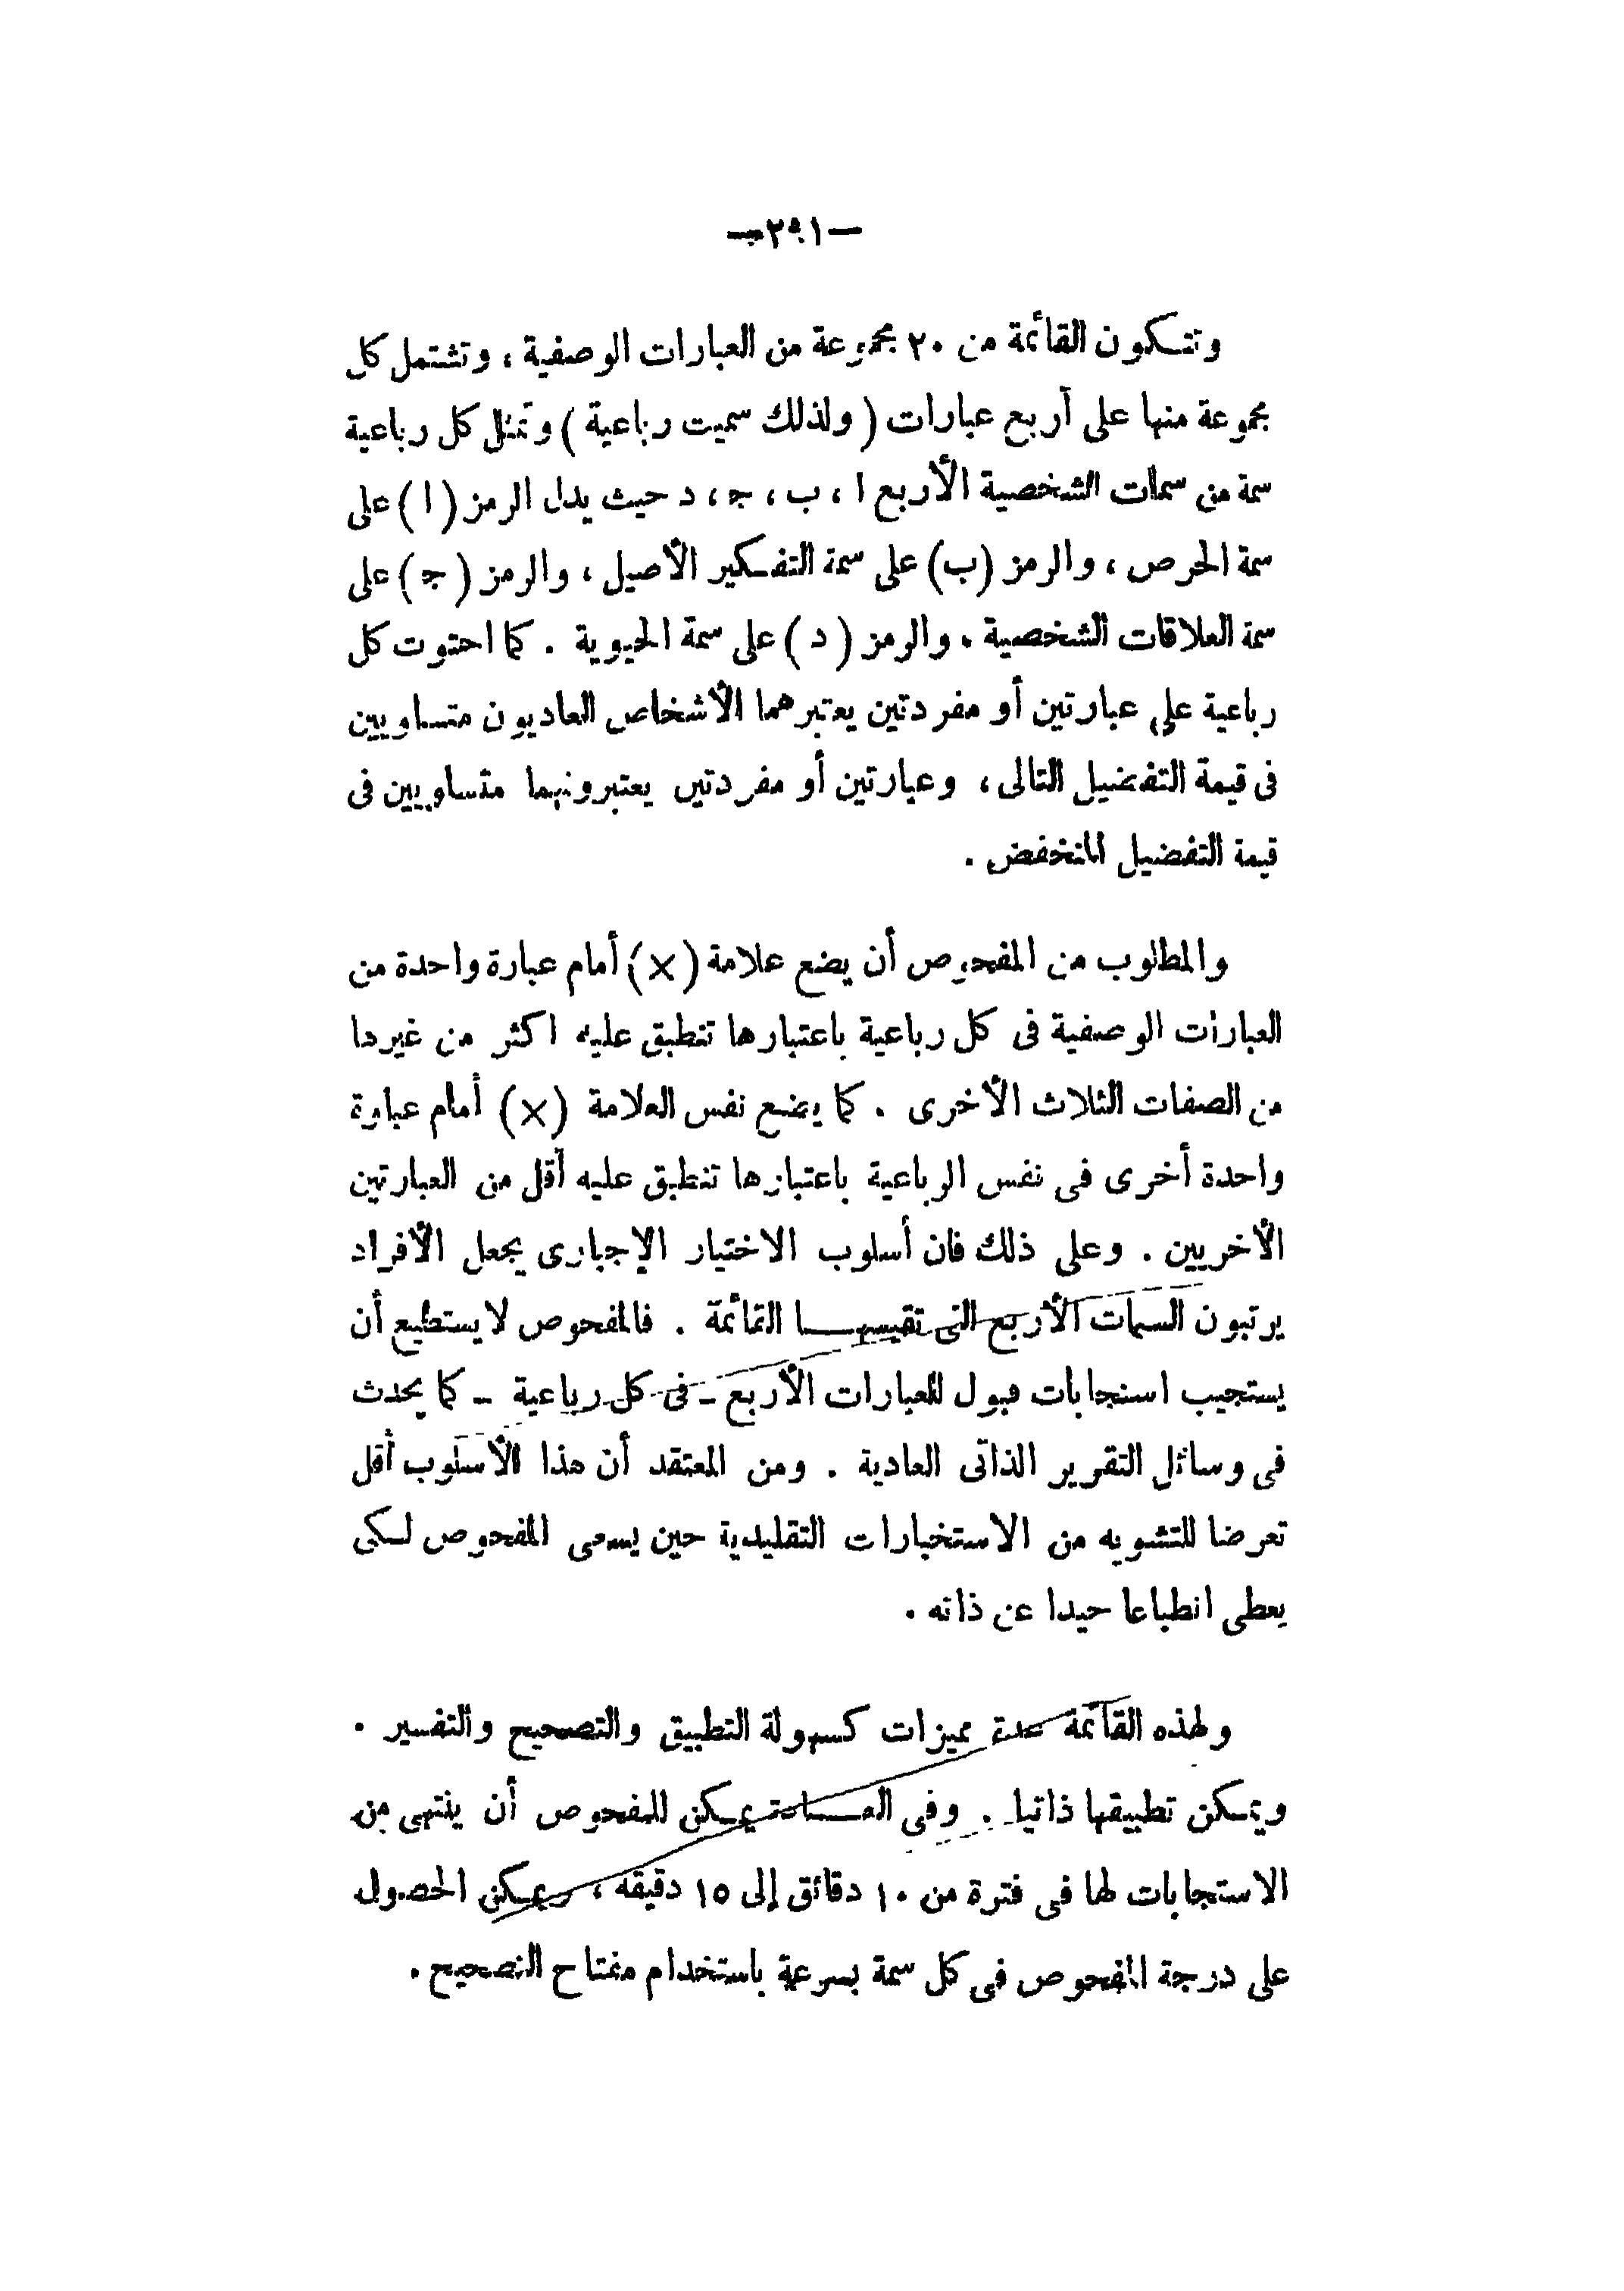 —٣٩١—
وتتكون القائمة من ٢٠ مجموعة من العبارات الوصفية ، وتشتمل كل
مجموعة منها على أربع عبارات ( ولذلك سميت رباعية ) وتمثل كل رباعية
سمة من سمات الشخصية الأربع ا ، ب ، جـ ، د حيث يدل الرمز ( ا ) على
سمة الحرص ، والرمز (ب) على سمة التفكير الأصيل ، والرمز ( جـ ) على
سمة العلاقات الشخصية . والرمز ( د ) على سمة الحيوية . كما احتوت كل
رباعية على عبارتين أو مفردتين يعتبرهما الأشخاص العاديون متساويين
فى قيمة التفضيل التالى ، وعبارتين أو مفردتين يعتبرونهما متساويين فى
قيمة التفضيل المنخفض .
والمطلوب من المفحوص أن يضع علامة (×) أمام عبارة واحدة من
العبارات الوصفية فى كل رباعية باعتبارها تنطبق عليه اكثر من غيرها
من الصفات الثلاث الأخرى . كما يضع نفس العلامة (×) أمام عبارة
واحدة أخرى فى نفس الرباعية باعتبارها تنطبق عليه أقل من العبارتين
الأخريين . وعلى ذلك فان أسلوب الاختيار الإجبارى يجعل الأفراد
يرتبون السمات الأربع التى تقيسها القائمة . فالمفحوص لا يستطيع أن
يستجيب استجابات قبول للعبارات الأربع ـ فى كل رباعية ـ كما يحدث
فى وسائل التقرير الذاتى العادية . ومن المعتقد أن هذا الأسلوب أقل
تعرضا للتشويه من الاستخبارات التقليدية حين يسعى المفحوص لكى
يعطى انطباعا جيدا عن ذاته .
ولهذه القائمة عدة مميزات كسهولة التطبيق والتصحيح والتفسير .
ويمكن تطبيقها ذاتيا . وفى العادة يمكن للمفحوص أن ينتهى من
الاستجابات لها فى فترة من ١٠ دقائق إلى ١٥ دقيقة ، ويمكن الحصول
على درجة المفحوص فى كل سمة بسرعة باستخدام مفتاح التصحيح .